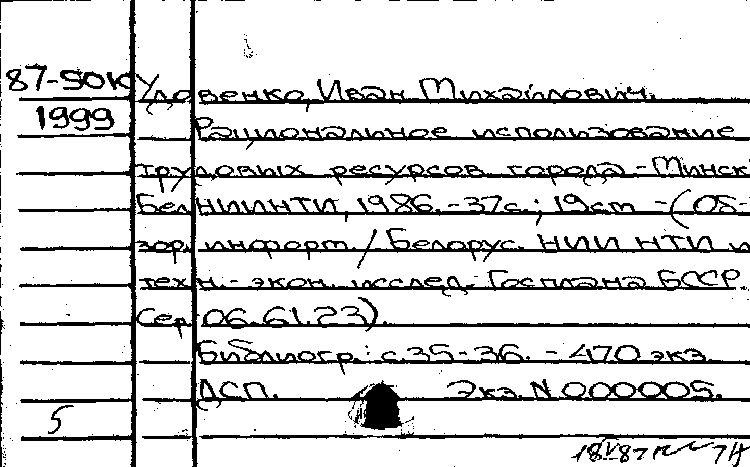 87-5ОК Удовенко, Иван Михайлович.
1999 Рациональное использование
трудовых ресурсов города - Минск
БелНИИНТИ, 1986. - 37с.; 19ст - (Об-
зор. информ. / Белорус. НИИ НТИ и
техн.-экон. исслед. Госплана БССР.
Сер 06.61.23).
Библиогр.: с.35-36. - 470 экз.
ДСП. Экз. N 000005.
5